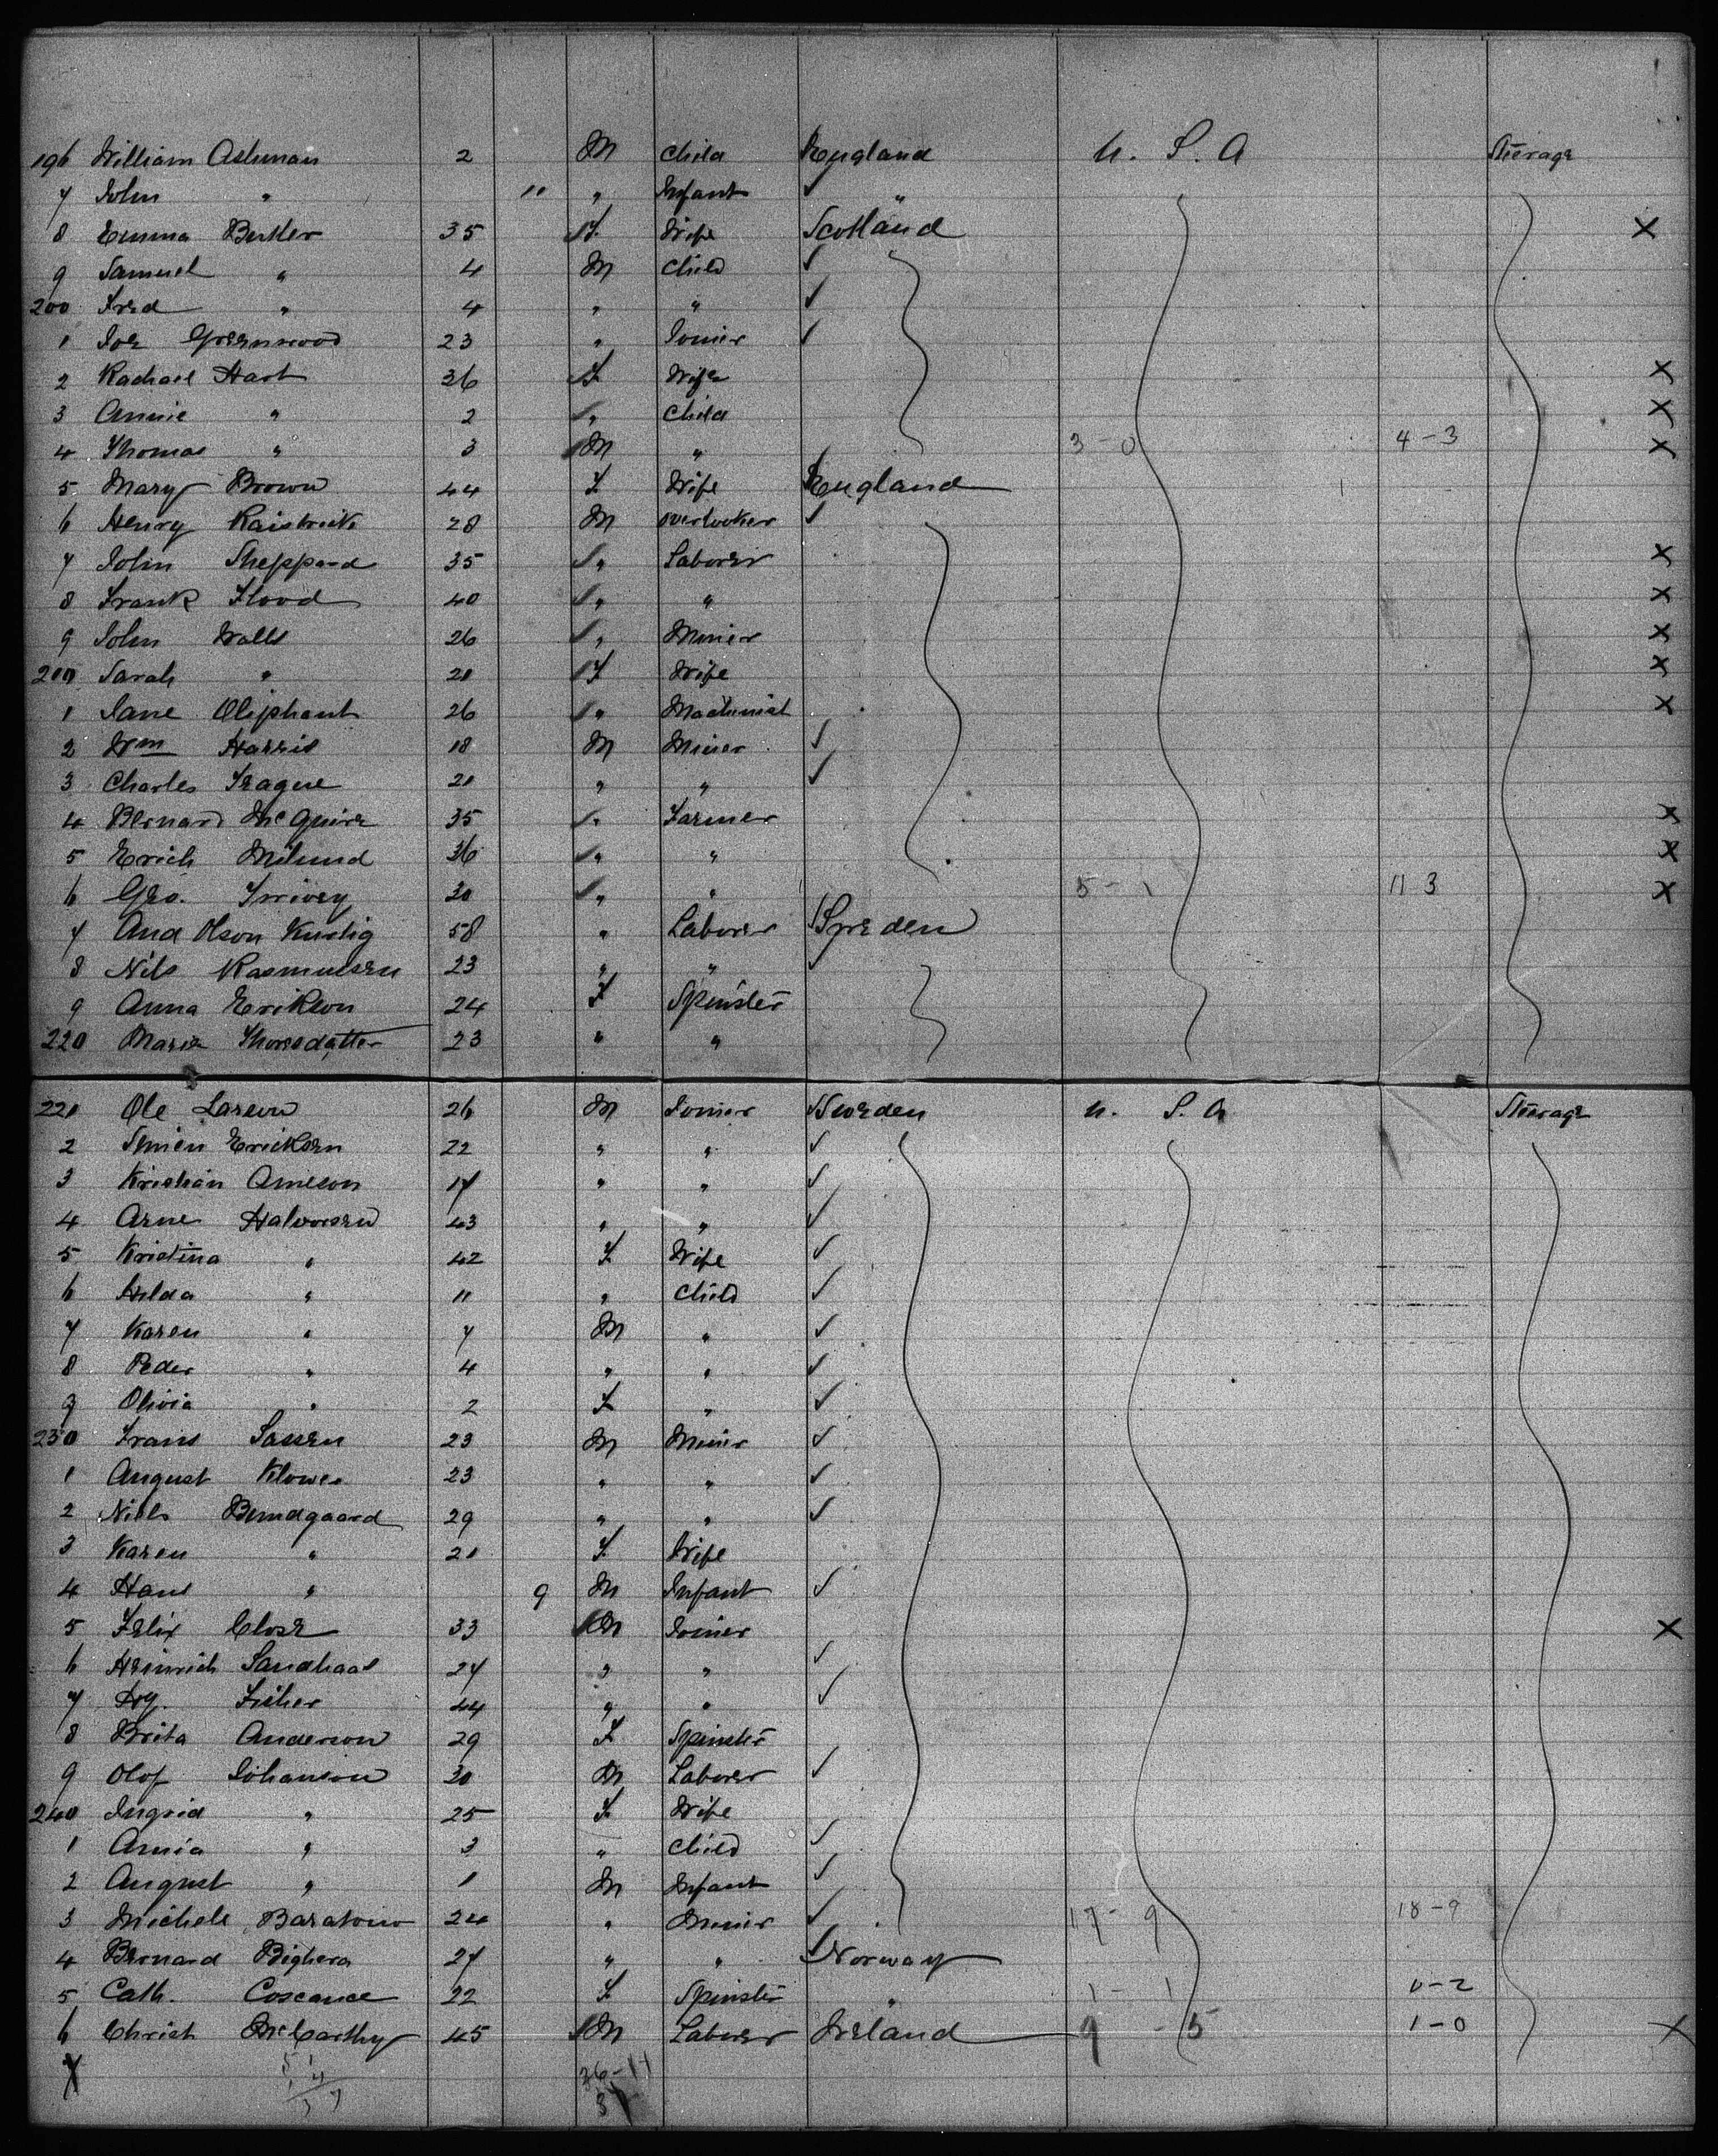 196 William Ashman 2 M Child England U. S. A Steerage
7 John " 11 " Infant ✓ "
8 Emma Butler 35 F. Wife Scotland X
9 Samuel " 4 M Child ✓
200 Fred " 4 " " ✓
1 Joe Greenwood 23 " Joiner ✓
2 Rachael Hart 36 F Wife X
3 Annie " 2 " Child X
4 Thomas " 3 M " 3 - 0 4 - 3 X
5 Mary Brown 44 F Wife England
6 Henry Raistrick 28 M overlooker ✓
7 John Sheppard 35 " Laborer X
8 Frank Flood 40 " " X
9 John Walls 26 " Miner X
210 Sarah " 21 F Wife X
1 Jane Oliphant 26 " Machinist X
2 Wm Harris 18 M Miner ✓
3 Charles Teague 21 " " ✓
4 Bernard McGuire 35 " Farmer X
5 Erich 36 " " X
6 Geo. 30 " " 5 - 1 11 3 X
7 And Olson 58 " Laborer Sweden
8 Nils Rasmussen 23 " " ✓
9 Anna Erikson 24 F Spinster
220 Marie Thorsdatter 23 " "
221 Ole Larson 26 M Joiner Sweden U. S. A Steerage
2 Ericksen 22 " " ✓
3 Kristian Arneson 17 " " ✓
4 Arne Halvorsen 43 " " ✓
5 Kristina " 42 F Wife ✓
6 Hilda " 11 " Child ✓
7 Karen " 7 M " ✓
8 Peder " 4 " " ✓
9 Olivia " 2 F " ✓
230 Frans 23 M Miner ✓
1 August Klower 23 " " ✓
2 Niels Bundgaard 29 " " ✓
3 Karen " 21 F Wife
4 Hans " 9 M Infant ✓
5 Felix Close 33 M Joiner X
6 Heinrich Sandhaas 27 " " ✓
7 Fisher 44 " " ✓
8 Brita Anderson 29 F Spinster
9 Olof Johanson 30 M Laborer ✓
240 Ingrid " 25 F Wife
1 Annia " 3 " Child ✓
2 August " 1 M Infant ✓
3 Michele Baratono 24 " Miner ✓ 17 - 9 18 - 9
4 Bernard Bighera 27 " " Norway
5 Cath. Coscance 22 F Spinster " 1 - 1 0 - 2
6 Christ McCarthy 45 M Laborer Ireland 9 - 5 1 - 0 X
7 26 - 11
37